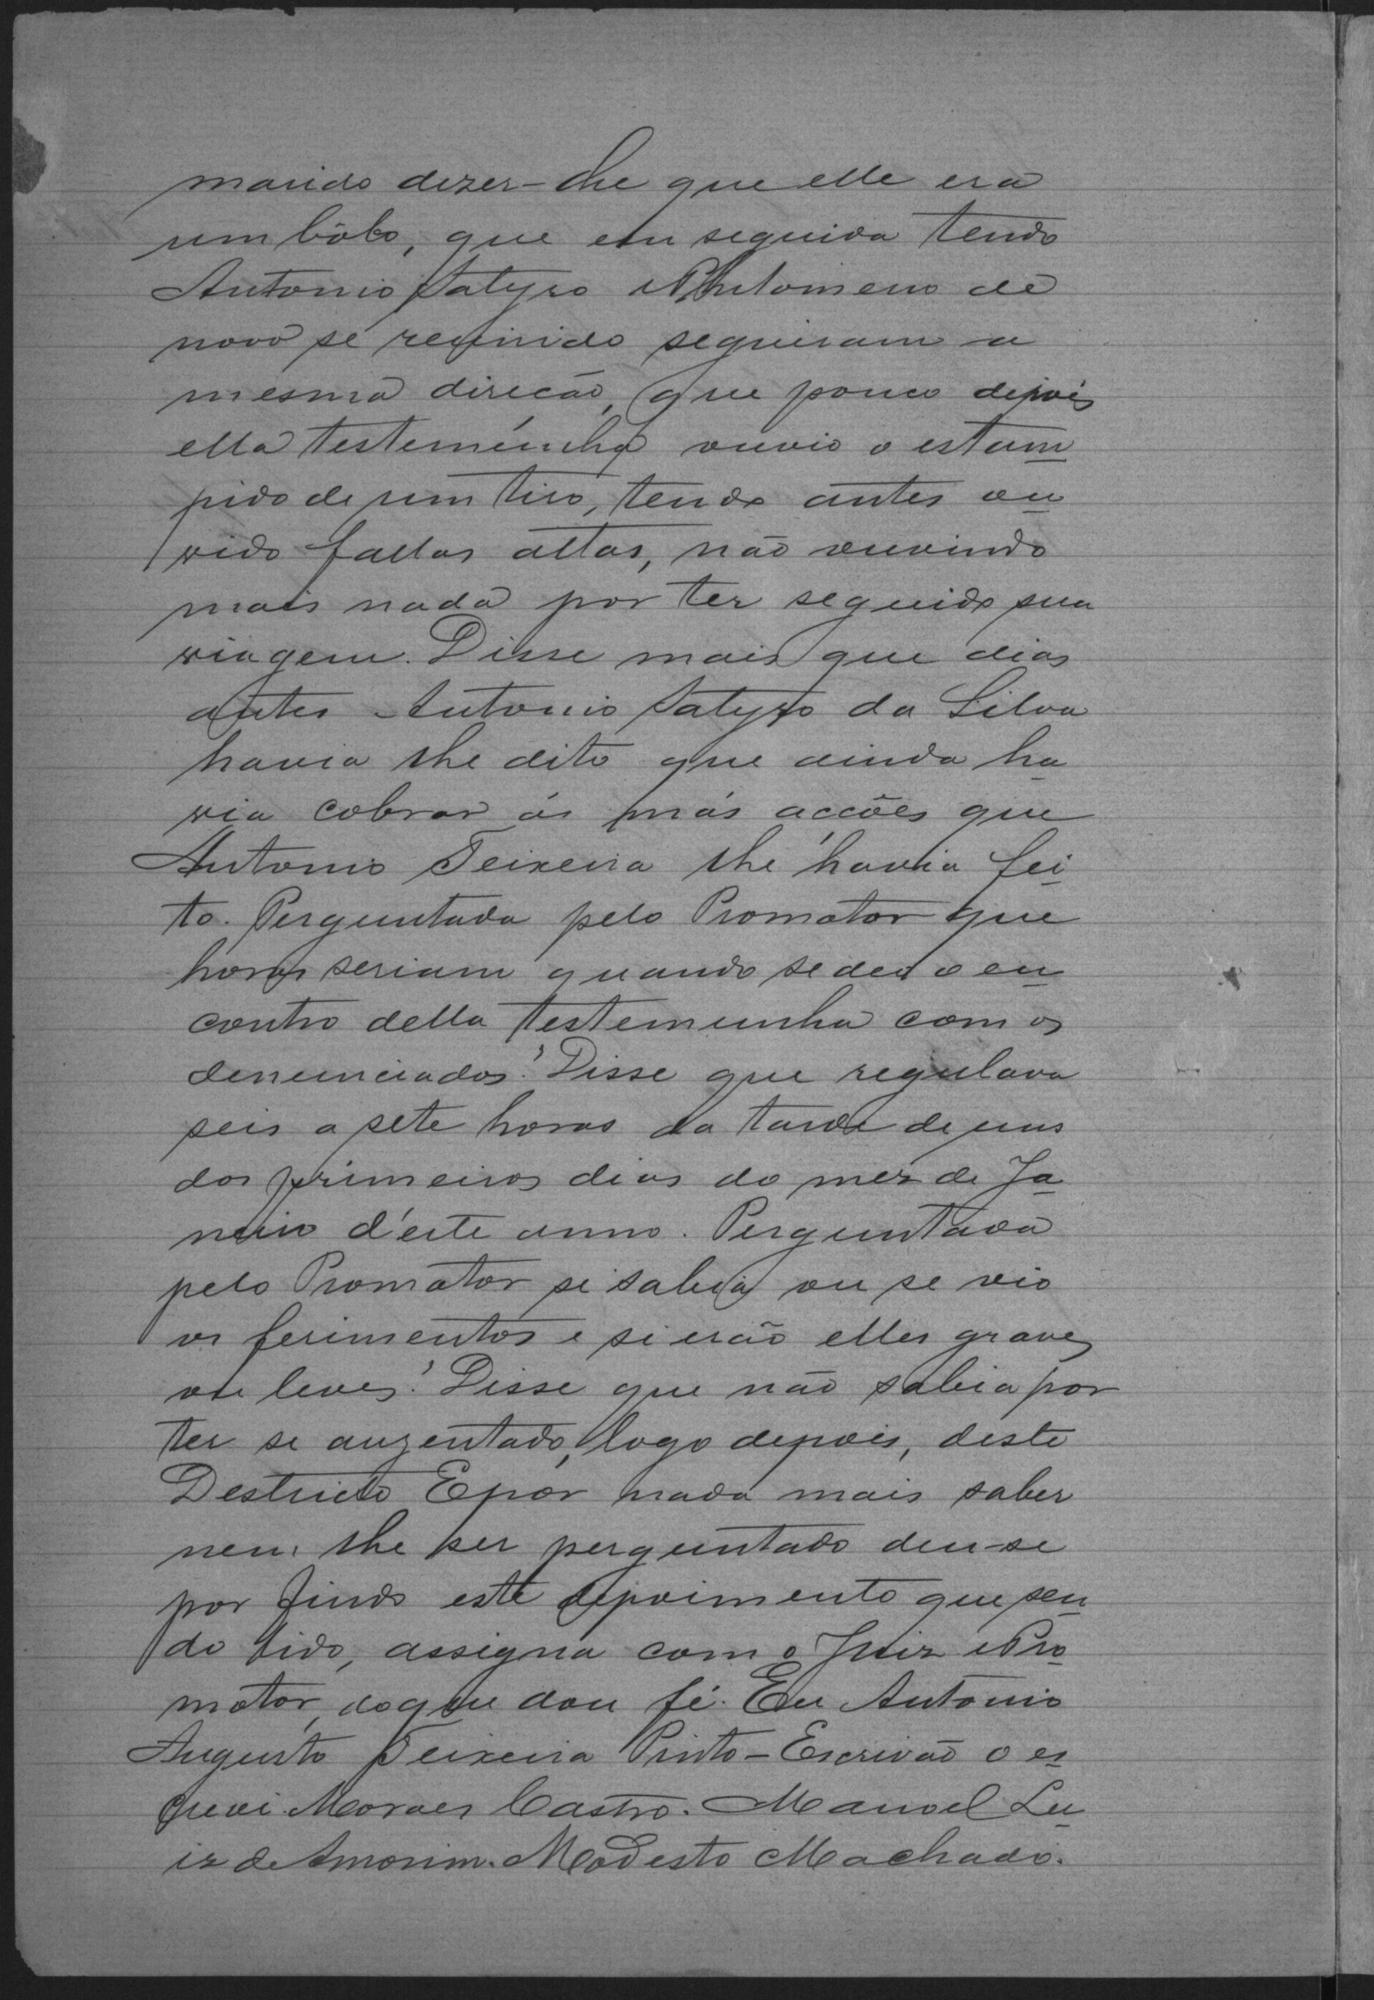 marido dizer-lhe que elle era
um bôbo, que em seguida tendo
Antonio Satyro e Philomeno de
novo se reunido seguiram a
mesma direcão, que pouco depois
ella testemunha ouvio o estam
pido de um tiro, tendo antes ou
vido fallas altas, não ouvindo
mais nada por ter seguido sua
viagem. Disse mais que dias
antes Antonio Satyro da Silva
havia lhe dito que ainda ha
via cobrar ás más accões que
Antonio Teixeira lhe havia fei
to. Perguntada pelo Promotor que
horas seriam quando se deu o en
contro della testemunha com os
denunciados? Disse que regulava
seis a sete horas da tarde de uns
dos primeiros dias do mez de Ja
neiro d'este anno. Perguntada
pelo Promotor si sabia ou se vio
os ferimentos e si erão elles graves
ou leves? Disse que não sabia por
ter se auzentado, logo depois, deste
Destricto E por nada mais saber
nem lhe ser perguntado deu-se
por findo este depoimento que sen
do lido, assigna com o Juiz e Pro
motor, do que dou fé. Eu Antonio
Augusto Teixeira Pinto - Escrivão o es
crevi. Moraes Castro. Manoel Lu
iz de Amorim. Modesto Machado.